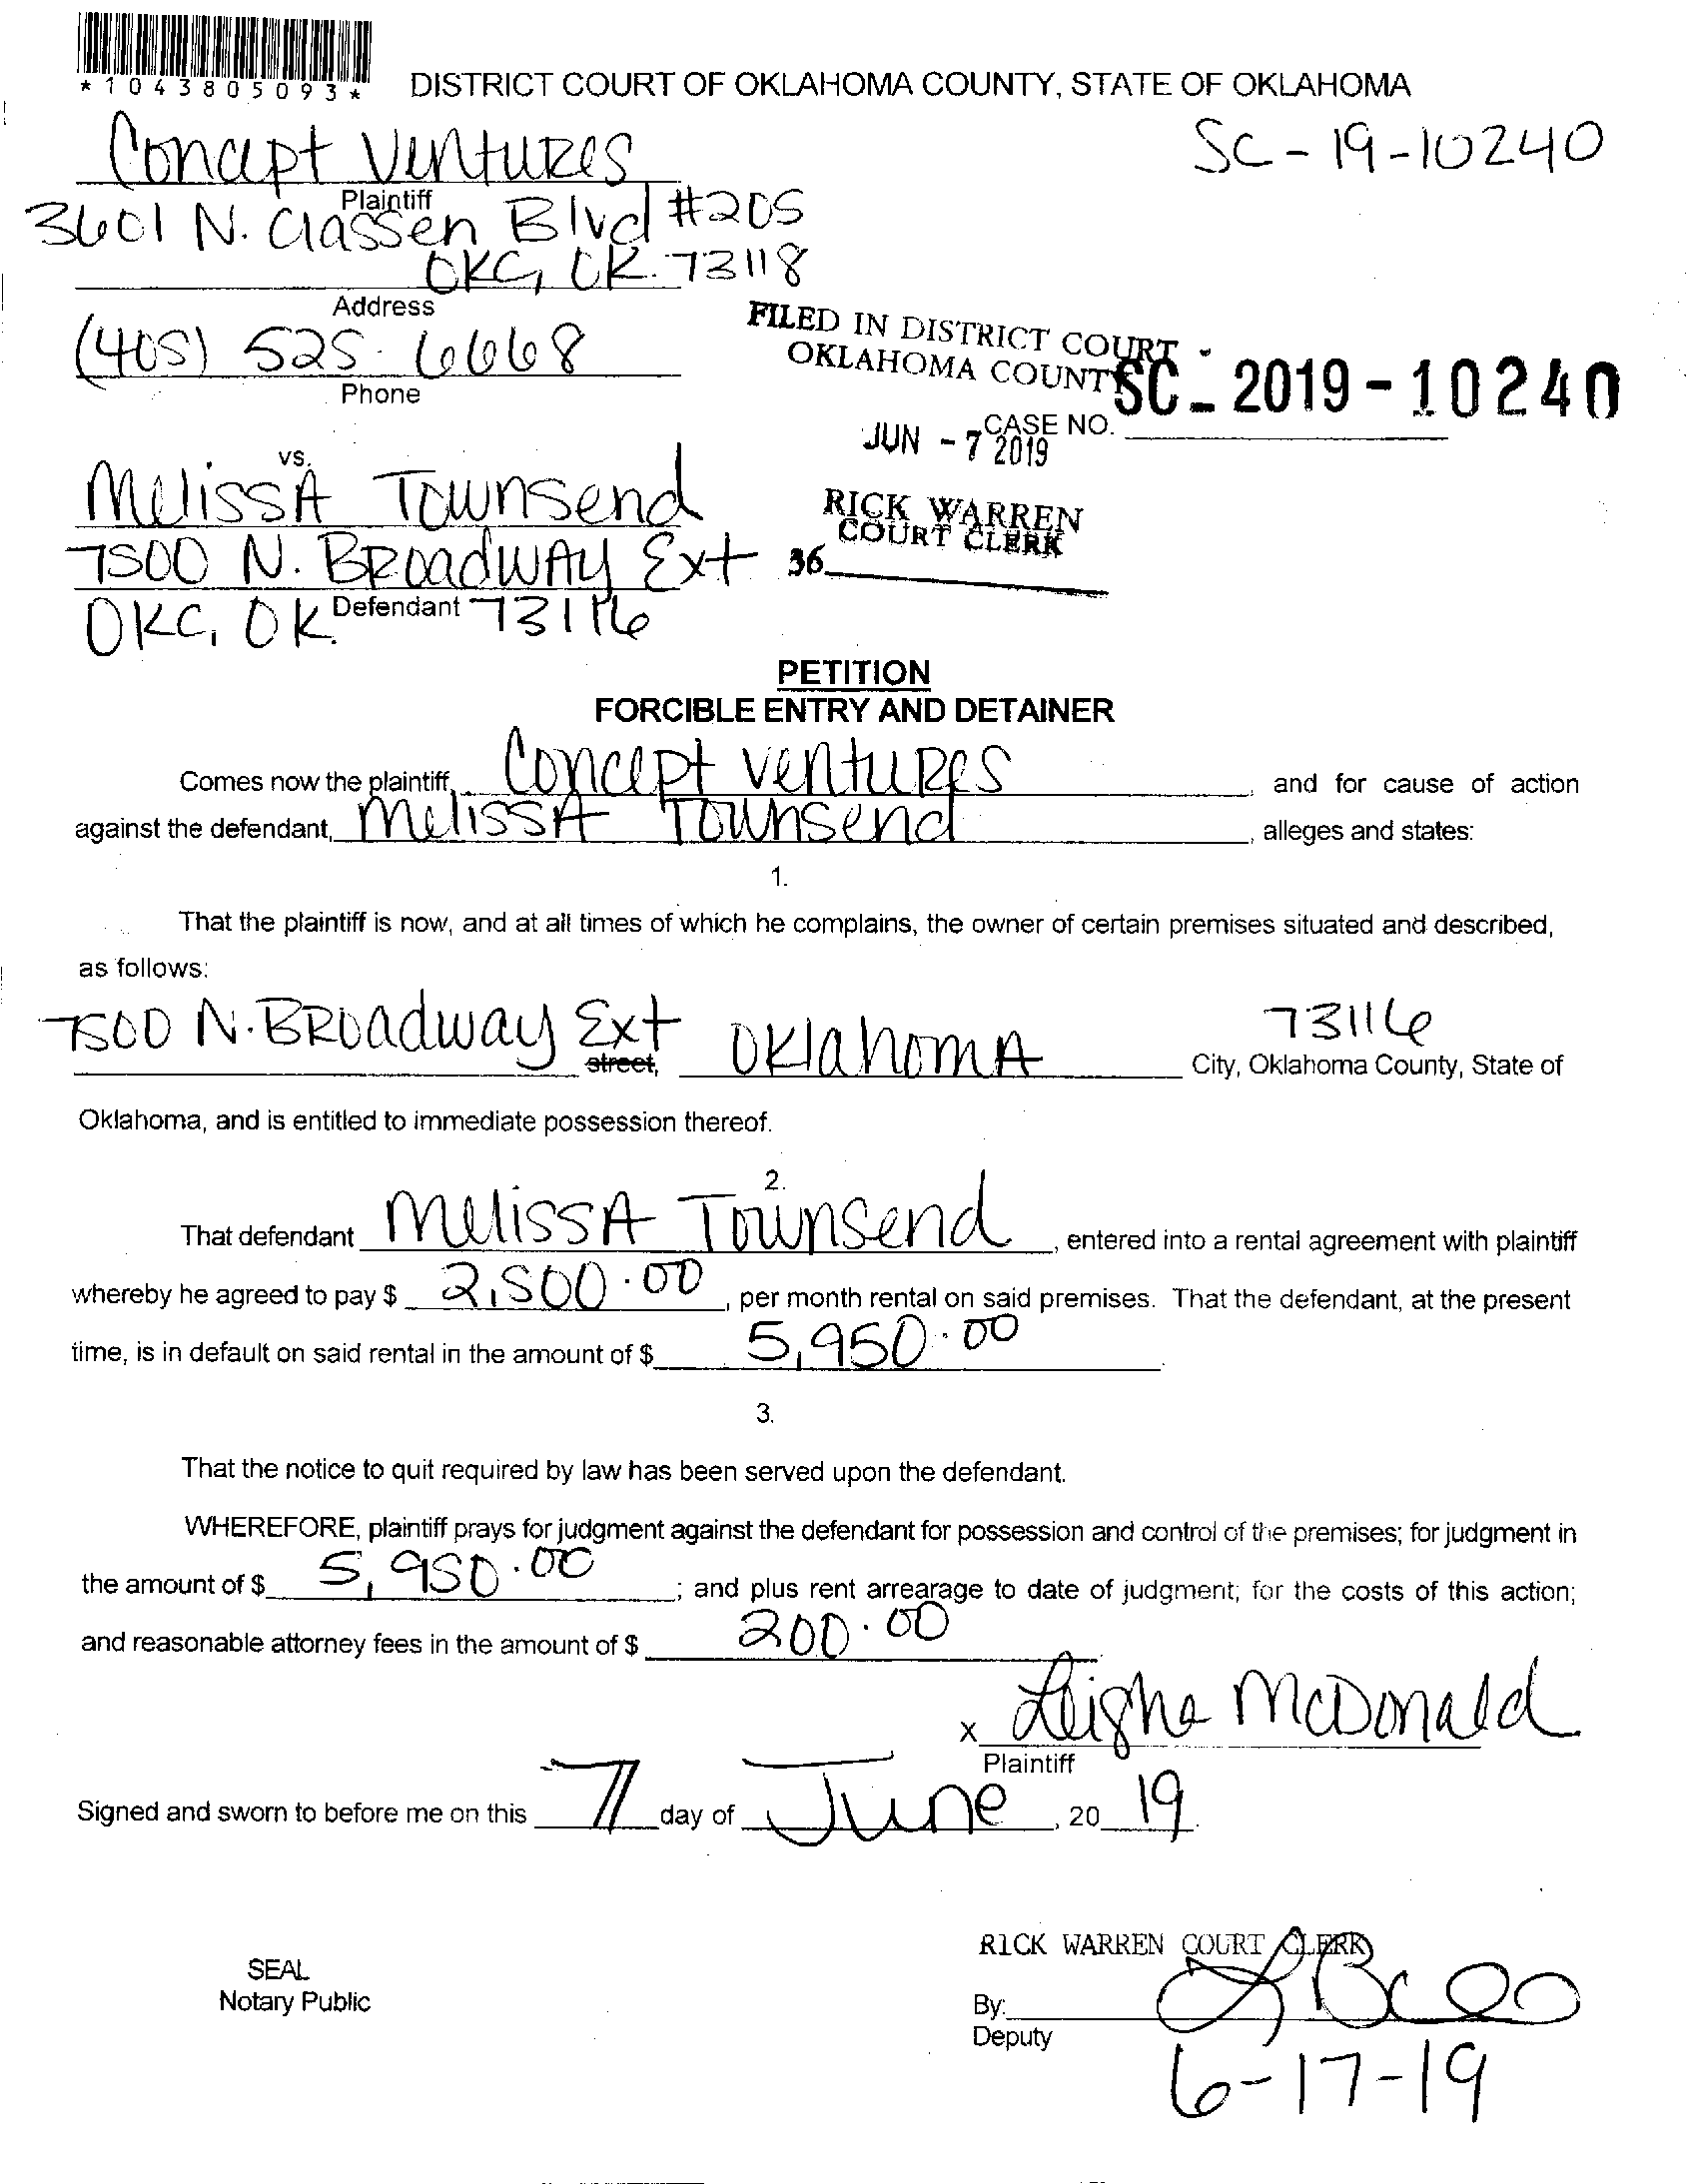 *1043805093*
DISTRICT COURT OF OKLAHOMA COUNTY, STATE OF OKLAHOMA
Concept Ventures
SC-19-10240
Plaintiff
3601 N. Classen Blvd #205
OKC, OK. 73118
Address
(405) 525-6668
Phone
FILED IN DISTRICT COURT
OKLAHOMA COUNTY
SC-2019-10240
CASE NO.
JUN - 7 2019
vs.
Melissa Townsend
RICK WARREN
COURT CLERK
7500 N. Broadway Ext
36
Defendant
OKC, OK. 73116
PETITION
FORCIBLE ENTRY AND DETAINER
Comes now the plaintiff, Concept Ventures, and for cause of action
against the defendant, Melissa Townsend, alleges and states:
1.
That the plaintiff is now, and at all times of which he complains, the owner of certain premises situated and described,
as follows:
7500 N. Broadway Ext street, Oklahoma 73116 City, Oklahoma County, State of
Oklahoma, and is entitled to immediate possession thereof.
2.
That defendant Melissa Townsend, entered into a rental agreement with plaintiff
whereby he agreed to pay $ 2,500.00, per month rental on said premises. That the defendant, at the present
time, is in default on said rental in the amount of $ 5,950.00.
3.
That the notice to quit required by law has been served upon the defendant.
WHEREFORE, plaintiff prays for judgment against the defendant for possession and control of the premises; for judgment in
the amount of $ 5,950.00; and plus rent arrearage to date of judgment; for the costs of this action;
and reasonable attorney fees in the amount of $ 200.00.
x Leigha McDonald
Plaintiff
Signed and sworn to before me on this 7 day of June, 2019.
RICK WARREN COURT CLERK
SEAL
Notary Public
By:
Deputy
6-17-19